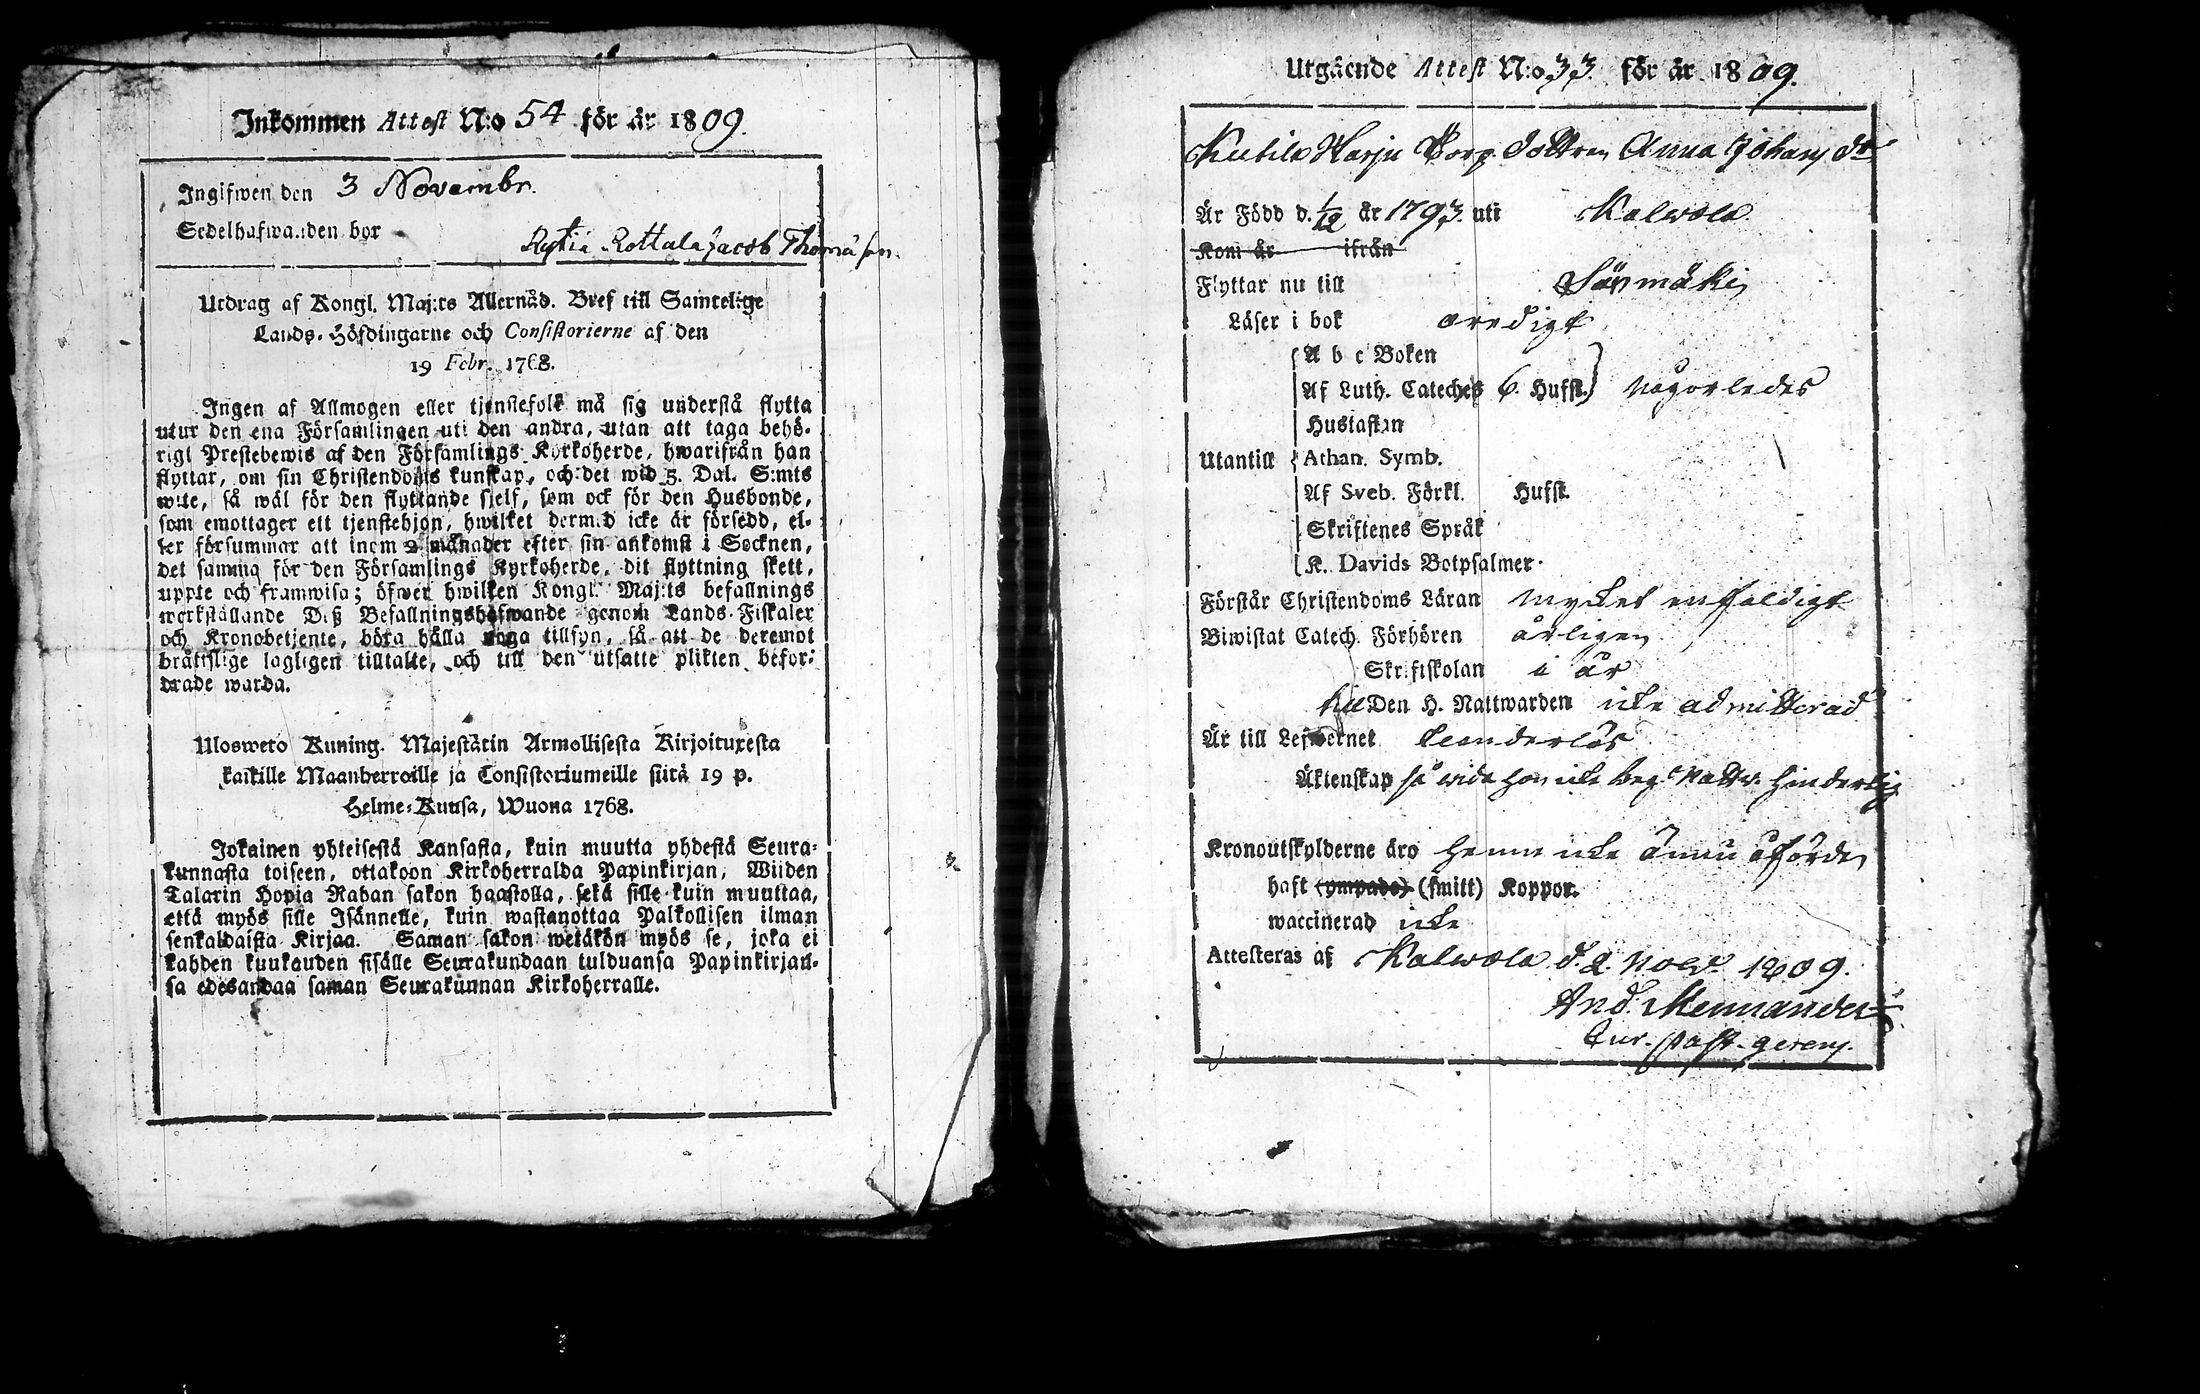 Inkommen Attest N:o 54 för år 1809.
Ingifwen den 3 Novembr.
Sedelhafwanden bor Rytiä Rottala Jacob Thomasson
Utdrag af Kongl. Maj:ts Allernåd. Bref till Samtelige
Lands-Höfdingarne och Consistorierne af den
19 Febr. 1768.
Ingen af Allmogen eller tjenstefolk må sig understå flytta
utur den ena Församlingen uti den andra, utan att taga behö-
rigt Prestebewis af den Församlings Kyrkoherde, hwarifrån han
flyttar, om sin Christendoms kunskap, och det wid 5. Dal. S:mts
wite, så wäl för den flyttande sjelf, som ock för den Husbonde,
som emottager ett tjenstehjon, hwilket dermed icke är försedd, el-
ler försummar att inom 2 månader efter sin ankomst i Socknen,
det samma för den Församlings Kyrkoherde, dit flyttning skett,
uppte och framwisa; öfwer hwilken Kongl. Maj:ts befallnings
werkställande Deß Befallningshafwande genom Lands-Fiskaler
och Kronobetjente, böra hålla noga tillsyn, så att de deremot
bråttslige lagligen tilltalte, och till den utsatte plikten befor-
drade warda.
Ulosweto Kuning. Majestätin Armollisesta Kirjoituxesta
kaikille Maanherroille ja Consistoriumeille siitä 19 p.
Helme-Kuusa, Wuona 1768.
Jokainen yhteisestä Kansasta, kuin muutta yhdestä Seura-
kunnasta toiseen, ottakoon Kirkoherralda Papinkirjan, Wiiden
Talarin Hopia Rahan sakon haastolla, sekä sille kuin muuttaa,
että myös sille Isännelle, kuin wastanottaa Palkollisen ilman
senkaldaista Kirjaa. Saman sakon wetäkön myös se, joka ei
kahden kuukauden sisälle Seurakundaan tulduansa Papinkirjan-
sa edesandaa saman Seurakunnan Kirkoherralle.
Utgående Attest N:o 33 för år 1809.
Kutila Harju Torp. Dottren Anna Johans dr
Är Född d. 1/12 år 1793. uti Kalvola
Kom år ifrån
Flyttar nu till Säxmäki
Läser i bok oredigt
A b c Boken
Af Luth. Cateches 6. Hufst. någorledes
Hustaflan
Utantill Athan. Symb.
Af Sveb. Förkl. Hufst.
Skriftenes Språk
K. Davids Botpsalmer.
Förstår Christendoms Läran mycket enfaldigt
Biwistat Catech. Förhören årligen
Skriftskolan i år
till Den H. Nattwarden icke admitterad
Är till Lefwernet klanderlös
Äktenskap så vida hon icke beg. Nattv. hinderlig
Kronoutskylderne äro henne icke ännu åförde
haft (ympade) (smitt) Koppor.
waccinerad icke
Attesteras af Kalvola d. 2. Nov. 1809.
And. Mennander
Cur. past. gerens.